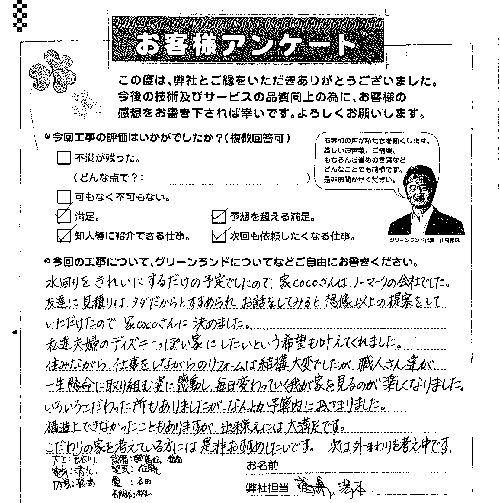 お客様アンケート
この度は、弊社とご縁をいただきありがとうございました。
今後の技術及びサービスの品質向上の為に、お客様の
感想をお書き下されば幸いです。よろしくお願いします。
今回工事の評価はいかがでしたか?(複数回答可)
不満が残った。
(どんな点で?: )
可もなく不可もない。
満足。
予想を超える満足。
知人等に紹介できる仕事。
次回も依頼したくなる仕事。
今回の工事について、グリーンランドについてなどご自由にお書きください。
水回りをきれいにするだけの予定でしたので、家cocoさんはノーマークの会社でした。
友達に見積りは、タダだからとすすめられ、お話をしてみると想像以上の提案をして
いただけたので 家cocoさんに決めました。
友達夫婦のディズニーっぽい家にしたいという希望も叶えてくれました。
住みながら、仕事をしながらのリフォームは結構大変でしたが、職人さん達が
一生懸命に取り組む姿に感動し、毎日変わっていく我が家を見るのが楽しくなりました。
いろいろこだわった所もありましたが、なんとか予算内におさまりました。
構造上できなかったこともありますが、出来栄えには大満足です。
こだわりの家を考えている方には是非お勧めしたいです。 次は外まわりを考え中です。
お名前
弊社担当